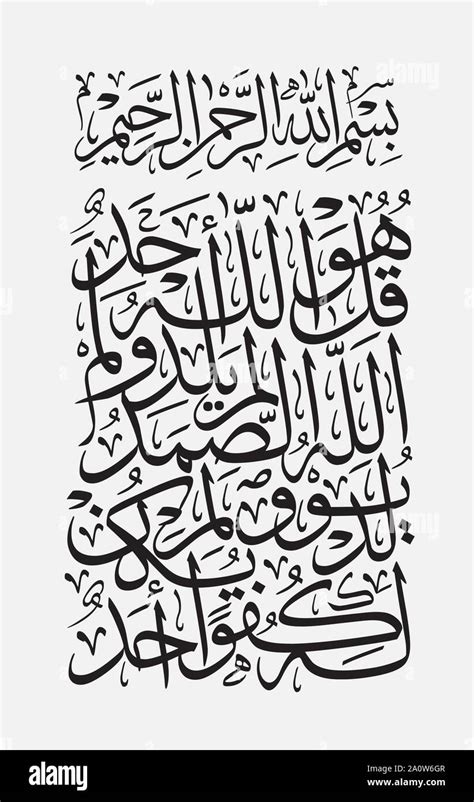 بِسْمِ اللهِ الرَّحْمٰنِ الرَّحِيْمِ
قُلْ هُوَ اللّٰهُ أَحَدٌ
اللّٰهُ الصَّمَدُ لَمْ يَلِدْ وَلَمْ
يُولَدْ وَلَمْ يَكُنْ
لَهُ كُفُوًا أَحَدٌ
alamy
alamy
Image ID: 2A0W6GR
www.alamy.com